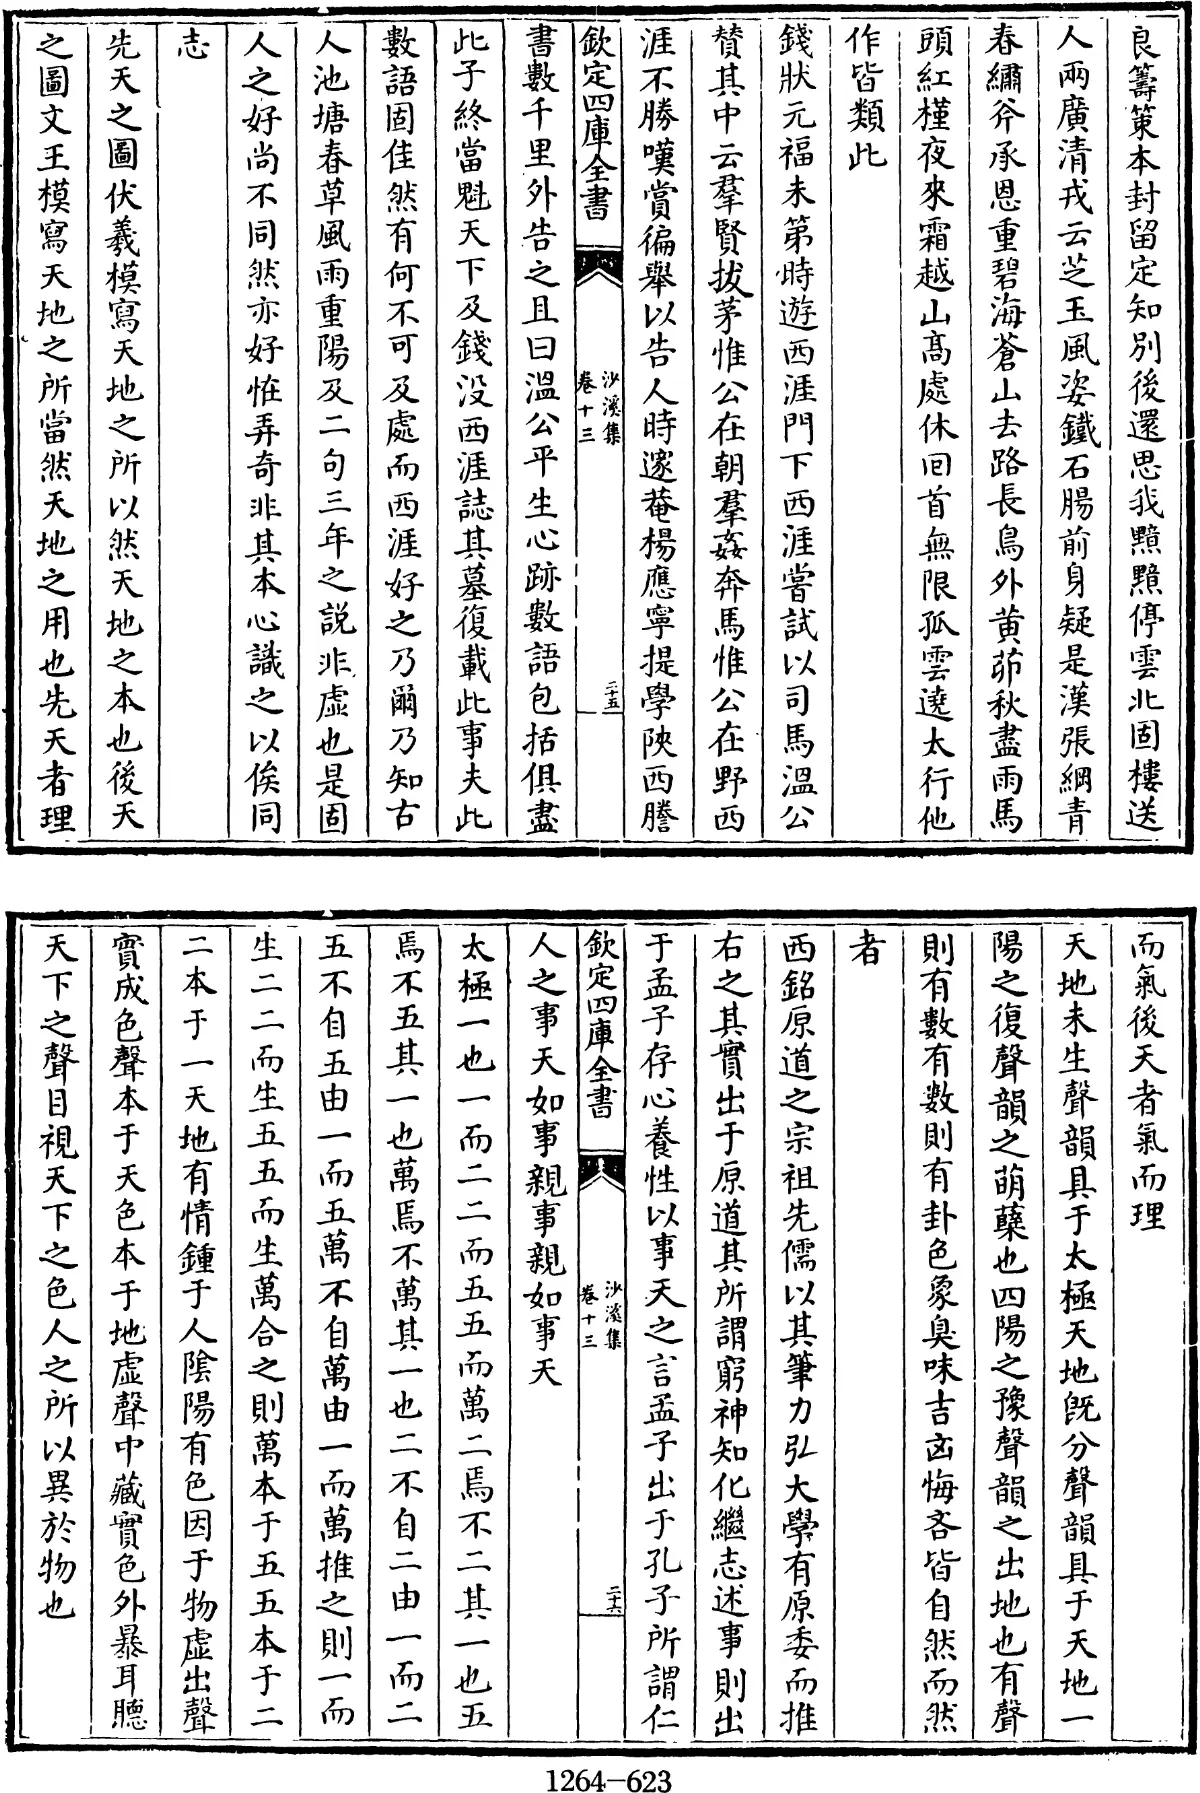 良籌策本封留定知別後還思我黯黯停雲北固樓送
人兩廣清戎云芝玉風姿鐵石腸前身疑是漢張綱青
春繡斧承恩重碧海蒼山去路長鳥外黄茆秋盡雨馬
頭紅槿夜來霜越山髙處休回首無限孤雲遶太行他
作皆類此
錢狀元福未第時遊西涯門下西涯嘗試以司馬温公
賛其中云羣賢拔茅惟公在朝羣姦奔馬惟公在野西
涯不勝嘆賞徧舉以告人時邃菴楊應寧提學陜西謄
欽定四庫全書
沙溪集
卷十三
二十五
書數千里外告之且曰溫公平生心跡數語包括俱盡
此子終當魁天下及錢沒西涯誌其墓復載此事夫此
數語固佳然有何不可及處而西涯好之乃爾乃知古
人池塘春草風雨重陽及二句三年之説非虛也是固
人之好尚不同然亦好恠弄奇非其本心識之以俟同
志
先天之圖伏羲模寫天地之所以然天地之本也後天
之圖文王模寫天地之所當然天地之用也先天者理
而氣後天者氣而理
天地未生聲韻具于太極天地旣分聲韻具于天地一
陽之復聲韻之萌蘖也四陽之豫聲韻之出地也有聲
則有數有數則有卦色象臭味吉凶悔吝皆自然而然
者
西銘原道之宗祖先儒以其筆力弘大學有原委而推
右之其實出于原道其所謂窮神知化繼志述事則出
于孟子存心養性以事天之言孟子出于孔子所謂仁
欽定四庫全書
沙溪集
卷十三
二十六
人之事天如事親事親如事天
太極一也一而二二而五五而萬二焉不二其一也五
焉不五其一也萬焉不萬其一也二不自二由一而二
五不自五由一而五萬不自萬由一而萬推之則一而
生二二而生五五而生萬合之則萬本于五五本于二
二本于一天地有情鍾于人陰陽有色因于物虛出聲
實成色聲本于天色本于地虛聲中藏實色外暴耳聽
天下之聲目視天下之色人之所以異於物也
1264-623